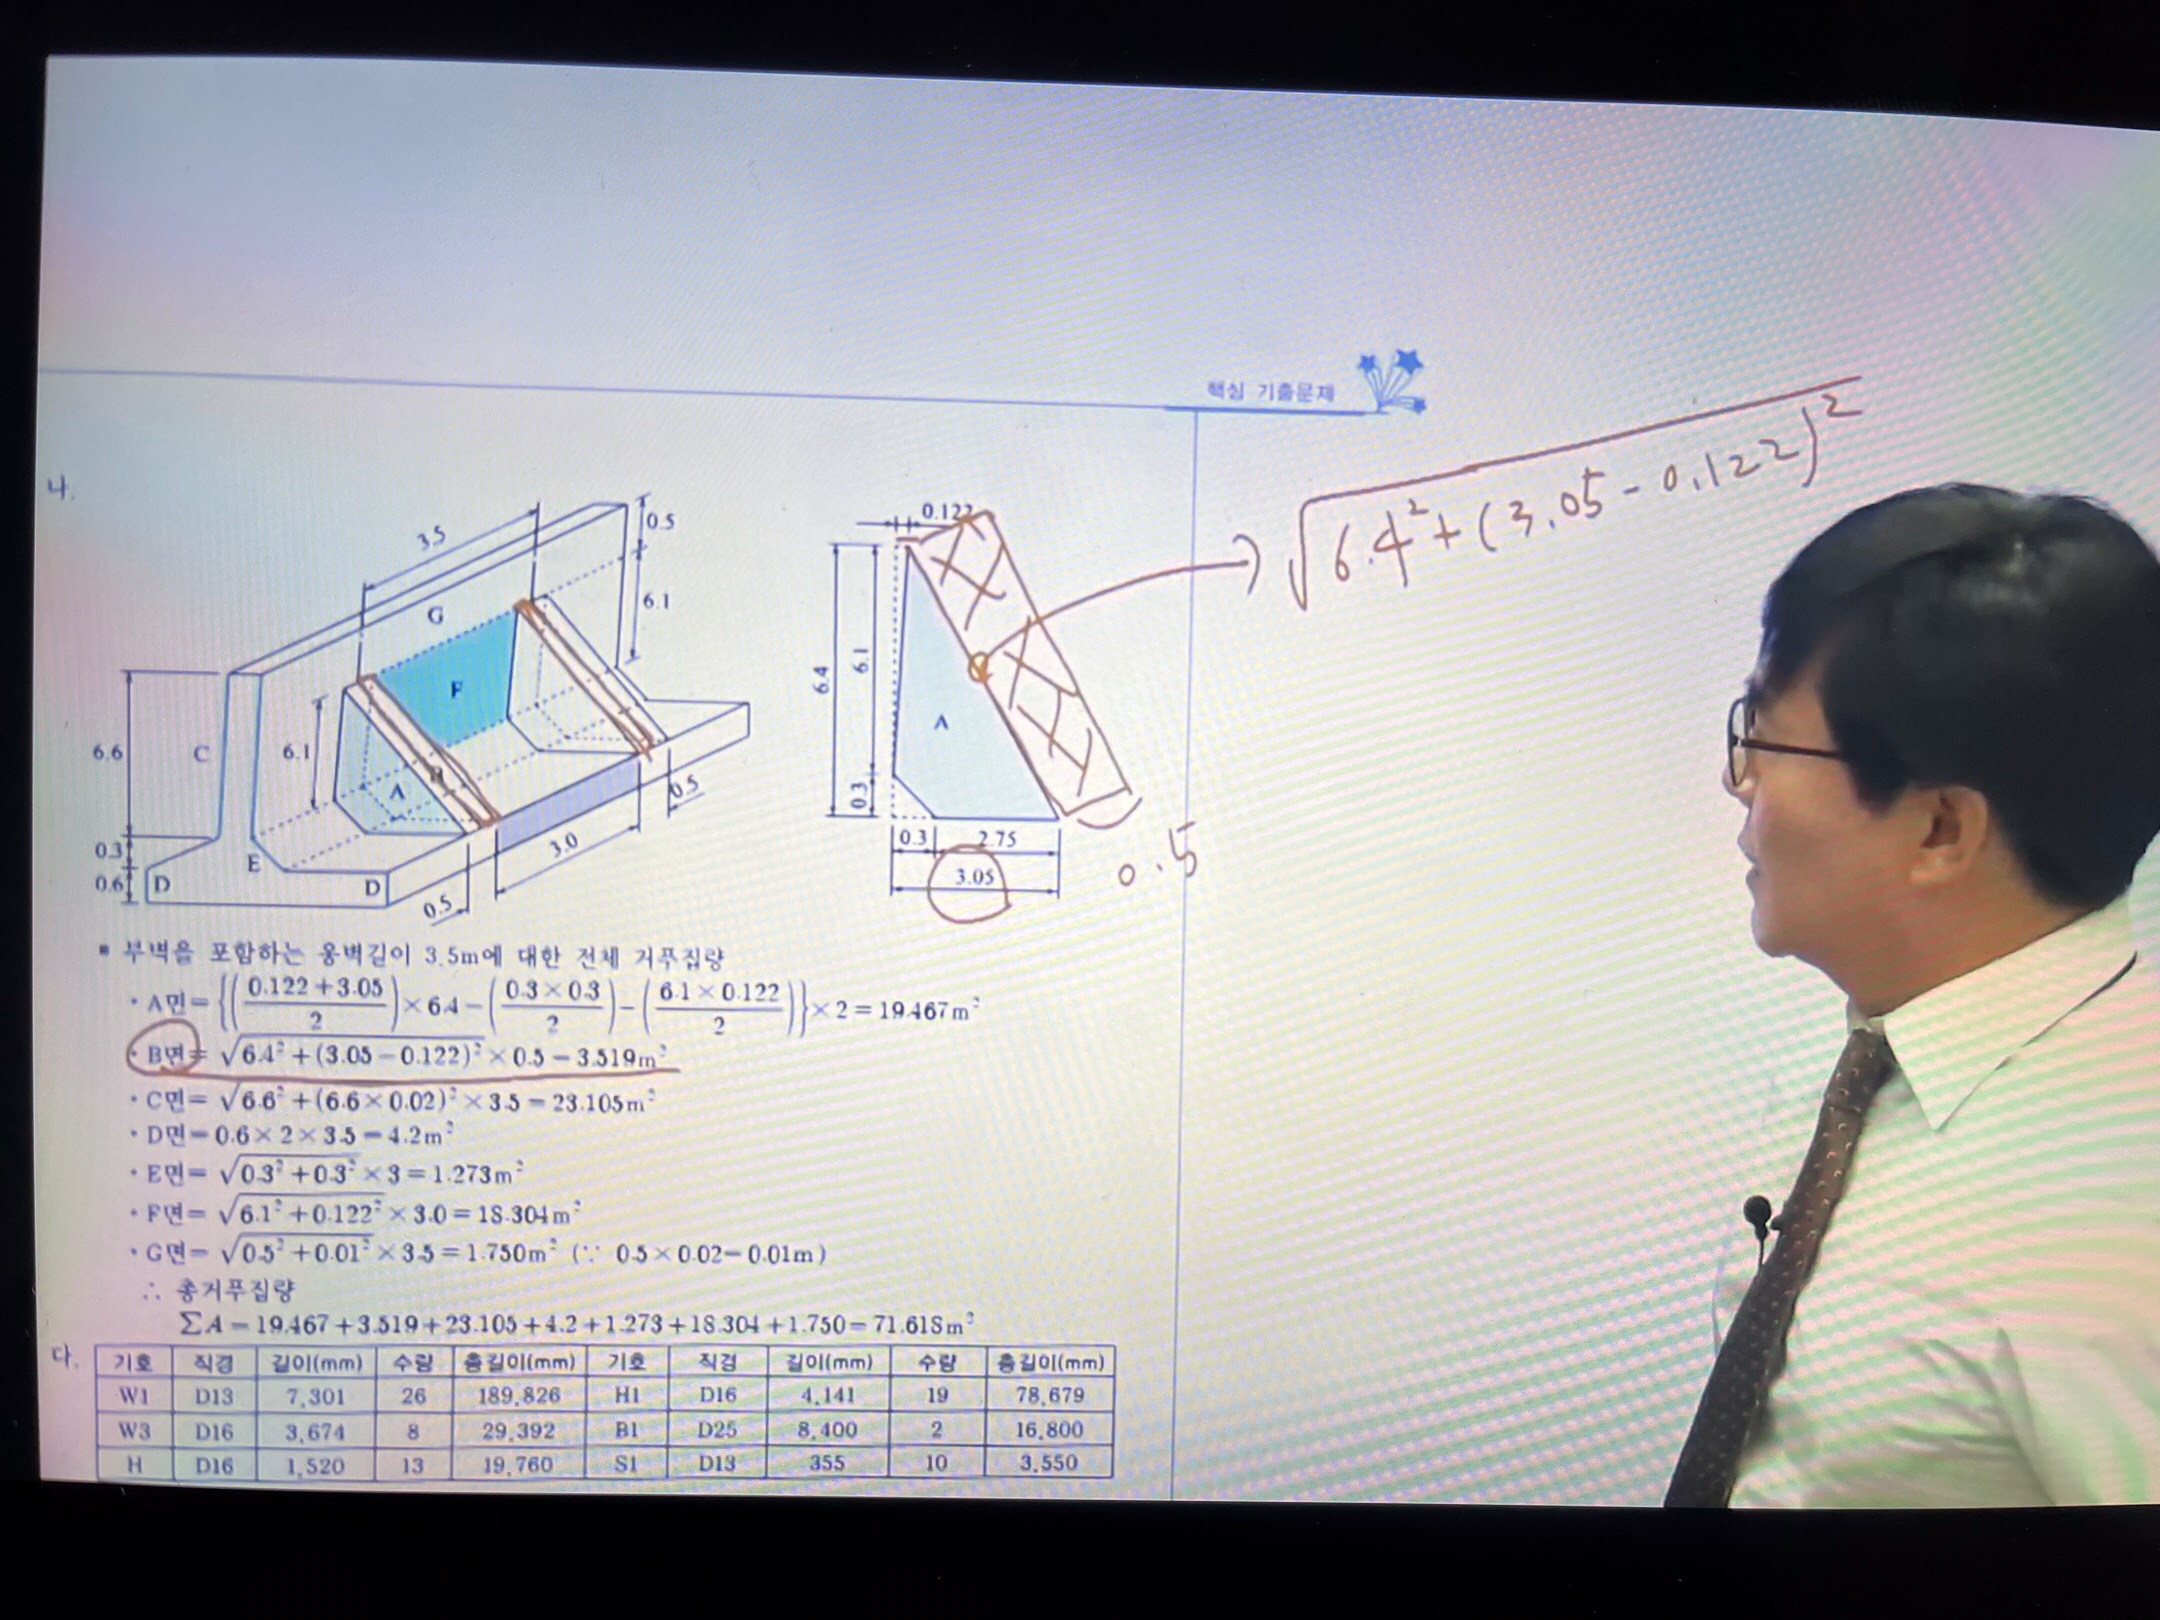 핵심 기출문제
나.
3.5
0.5
6.1
G
F
6.6
C
6.1
B
A
0.3
0.6
D
E
D
0.5
3.0
0.5
0.122
6.4
6.1
0.3
A
0.3
2.75
3.05
0.5
√6.4²+(3.05-0.122)²
▪ 부벽을 포함하는 옹벽길이 3.5m에 대한 전체 거푸집량
· A면={((0.122+3.05)/2)×6.4-((0.3×0.3)/2)-((6.1×0.122)/2)}×2=19.467m²
· B면= √6.4²+(3.05-0.122)² ×0.5=3.519m²
· C면= √6.6²+(6.6×0.02)² ×3.5=23.105m²
· D면=0.6×2×3.5=4.2m²
· E면= √0.3²+0.3² ×3=1.273m²
· F면= √6.1²+0.122² ×3.0=18.304m²
· G면= √0.5²+0.01² ×3.5=1.750m² (∵ 0.5×0.02=0.01m)
∴ 총거푸집량
ΣA=19.467+3.519+23.105+4.2+1.273+18.304+1.750=71.618m²
다.
기호 직경 길이(mm) 수량 총길이(mm) 기호 직경 길이(mm) 수량 총길이(mm)
W1 D13 7,301 26 189,826 H1 D16 4,141 19 78,679
W3 D16 3,674 8 29,392 B1 D25 8,400 2 16,800
H D16 1,520 13 19,760 S1 D13 355 10 3,550